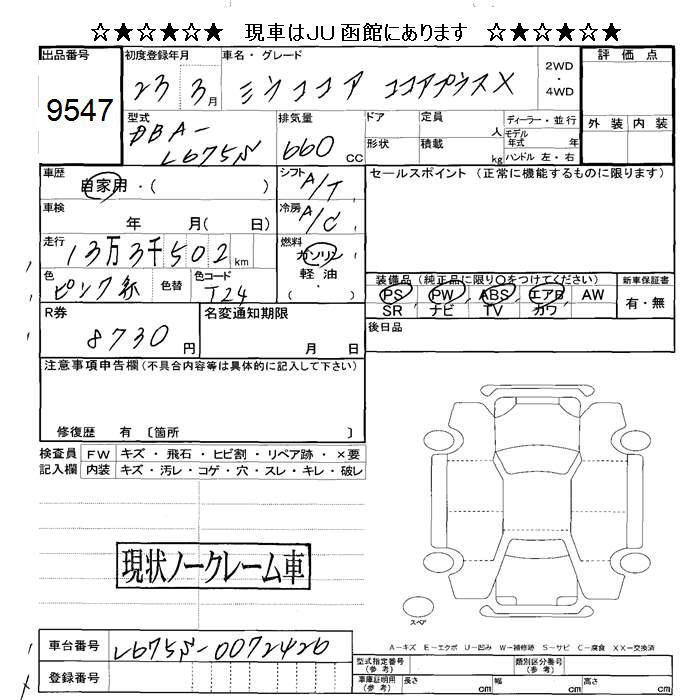 ☆★☆★☆★　現車はJU函館にあります　☆★☆★☆★
出品番号
9547
初度登録年月
23 3月
車名・グレード
ミラココア ココアプラスX
2WD
・
4WD
評価点
外装 内装
型式
DBA-
L675S
排気量
660 CC
ドア
定員
人
ディーラー・並行
形状
積載
kg
モデル年式 年
ハンドル 左・右
車歴
自家用・( )
シフト
A/T
セールスポイント (正常に機能するものに限ります)
車検
年 月( 日)
冷房
A/C
走行
13万3千502km
燃料
ガソリン
・
軽油
・( )
色
ピンク系
色替
色コード
T24
装備品 (純正品に限り○をつけてください)
新車保証書
PS PW ABS エアB AW
SR ナビ TV カワ
有・無
R券
8730円
名変通知期限
月 日
後日品
注意事項申告欄(不具合内容等は具体的に記入して下さい)
修復歴 有 〔箇所 〕
検査員
記入欄
FW キズ・飛石・ヒビ割・リペア跡・×要
内装 キズ・汚レ・コゲ・穴・スレ・キレ・破レ
現状ノークレーム車
スペア
A－キズ E－エクボ U－凹み W－補修跡 S－サビ C－腐食 XX－交換済
車台番号
L675S-0072426
登録番号
型式指定番号
(参考)
類別区分番号
(参考)
車庫証明用
(参考)
長さ cm 幅 cm 高さ cm